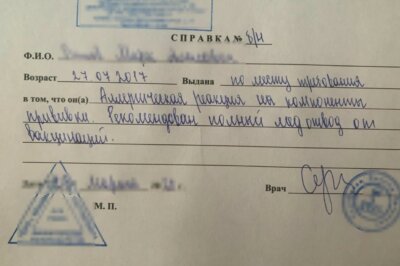 СПРАВКА № б/н
Ф.И.О.
Возраст 27 07 2017 Выдана по месту требования
в том, что он(а) Аллергическая реакция на компоненты
прививки. Рекомендован полный мед отвод от
вакцинаций.
Врач
М. П.